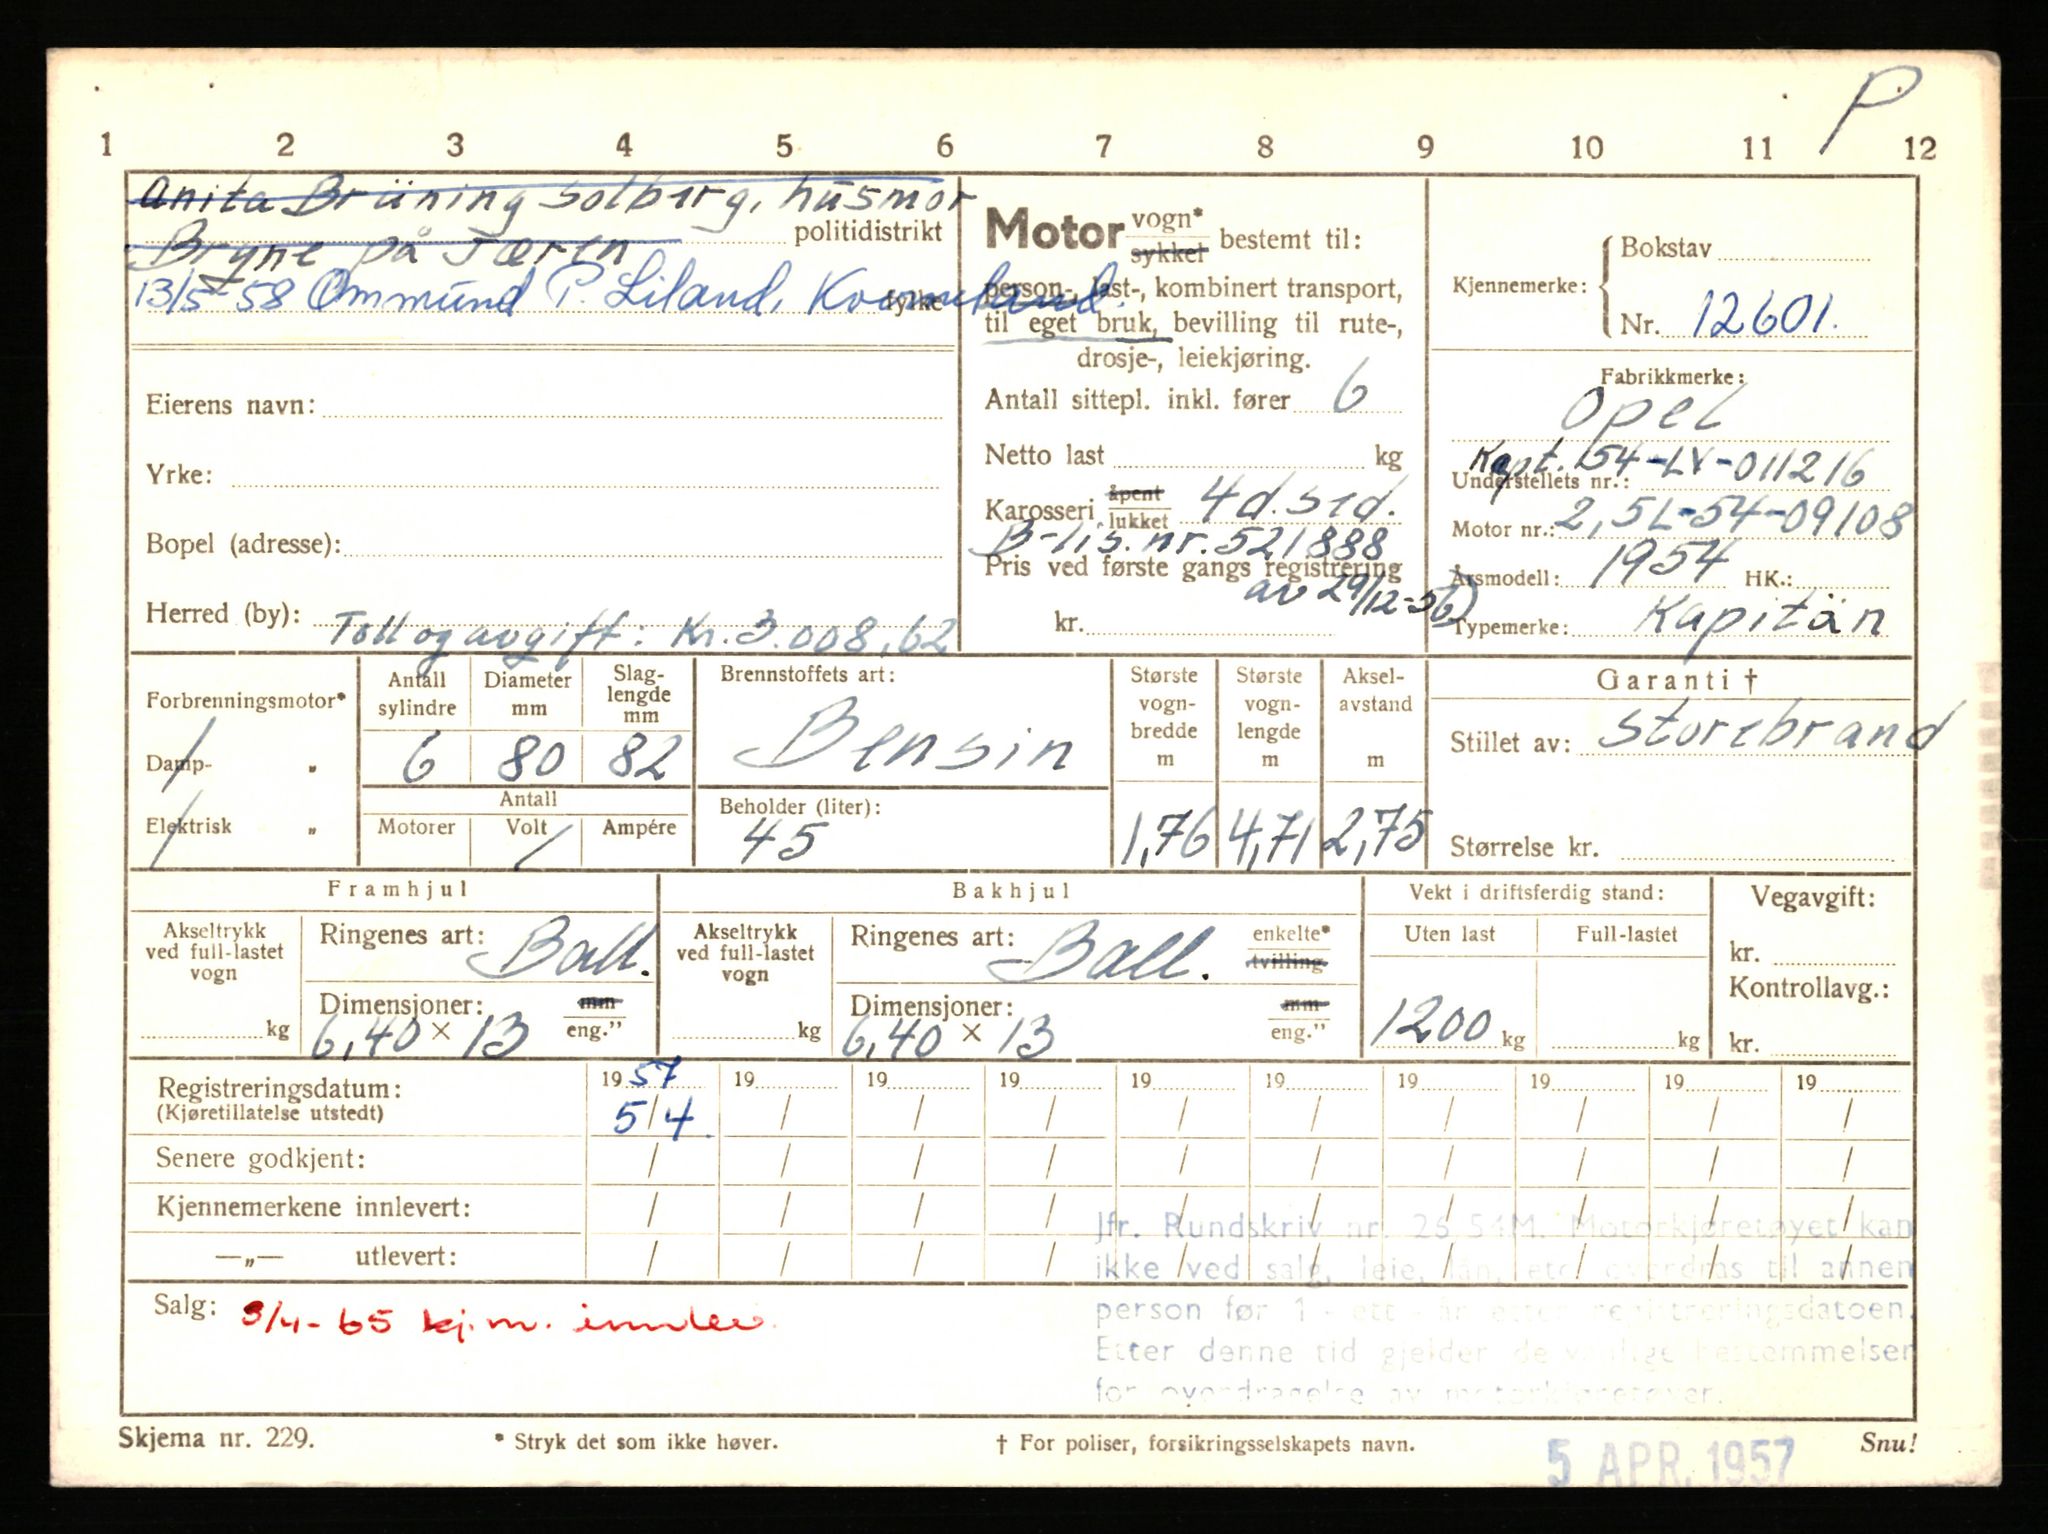 P
1 2 3 4 5 6 7 8 9 10 11 12
Anita Brüning Solberg, husmor
politidistrikt
Bryne på Jæren
13/5-58 Ommund P. Liland, Kvernaland.
fylke
Eierens navn:
Yrke:
Bopel (adresse):
Herred (by):
Toll og avgift: Kr. 3.008,62
Motor vogn* sykkel bestemt til:
person-, last-, kombinert transport,
til eget bruk, bevilling til rute-,
drosje-, leiekjøring.
Antall sittepl. inkl. fører 6
Netto last kg
Karosseri åpent lukket 4d. sed.
B-lis. nr. 521888
Pris ved første gangs registrering
av 29/12-56)
kr.
Kjennemerke: Bokstav
Nr. 12601.
Fabrikkmerke:
Opel
Kapt. 54-LV-011216
Understellets nr.:
Motor nr.: 2,5L-54-09108
Årsmodell: 1954 HK.:
Typemerke: Kapitän
Forbrenningsmotor*
Damp- „
Elektrisk „
Antall sylindre 6
Diameter mm 80
Slag-lengde mm 82
Antall
Motorer Volt Ampére
Brennstoffets art:
Bensin
Beholder (liter):
45
Største vogn-bredde m 1,76
Største vogn-lengde m 4,71
Aksel-avstand m 2,75
Garanti †
Stillet av: Storebrand
Størrelse kr.
Framhjul
Akseltrykk ved full-lastet vogn kg
Ringenes art: Ball.
Dimensjoner: mm eng."
6,40 × 13
Bakhjul
Akseltrykk ved full-lastet vogn kg
Ringenes art: Ball. enkelte* tvilling
Dimensjoner: mm eng."
6,40 × 13
Vekt i driftsferdig stand:
Uten last Full-lastet
1200 kg kg
Vegavgift:
kr.
Kontrollavg.:
kr.
Registreringsdatum: 1957 19 19 19 19 19 19 19 19 19
(Kjøretillatelse utstedt) 5/4 / / / / / / / / /
Senere godkjent: / / / / / / / / / /
Kjennemerkene innlevert: / / / / / / / / / /
—„— utlevert: / / / / / / / / / /
Jfr. Rundskriv nr. 26 54M. Motorkjøretøyet kan
ikke ved salg, leie, lån, etc overdras til annen
person før 1 - ett - år etter registreringsdatoen.
Etter denne tid gjelder de vanlige bestemmelser
for overdragelse av motorkjøretøyer.
Salg: 3/4-65 kj.m. innlev.
Skjema nr. 229.
* Stryk det som ikke høver.
† For poliser, forsikringsselskapets navn.
Snu!
5 APR. 1957